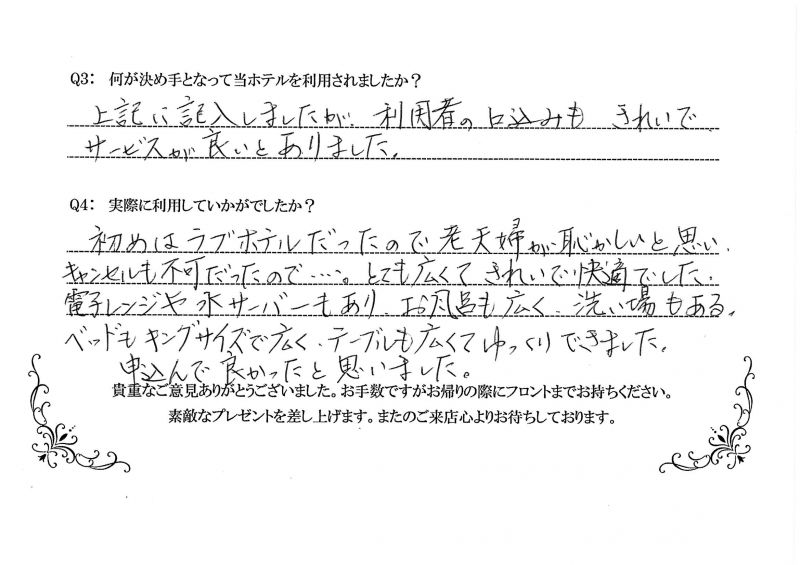 Q3: 何が決め手となって当ホテルを利用されましたか?
上記に記入しましたが、利用者の口込みも きれいで
サービスが良いとありました。
Q4: 実際に利用していかがでしたか?
初めはラブホテルだったので老夫婦が恥かしいと思い、
キャンセルも不可だったので・・・・。とても広くてきれいで快適でした。
電子レンジや水サーバーもあり、お風呂も広く、洗い場もある。
ベッドもキングサイズで広く、テーブルも広くてゆっくりできました。
申込んで良かったと思いました。
貴重なご意見ありがとうございました。お手数ですがお帰りの際にフロントまでお持ちください。
素敵なプレゼントを差し上げます。またのご来店心よりお待ちしております。